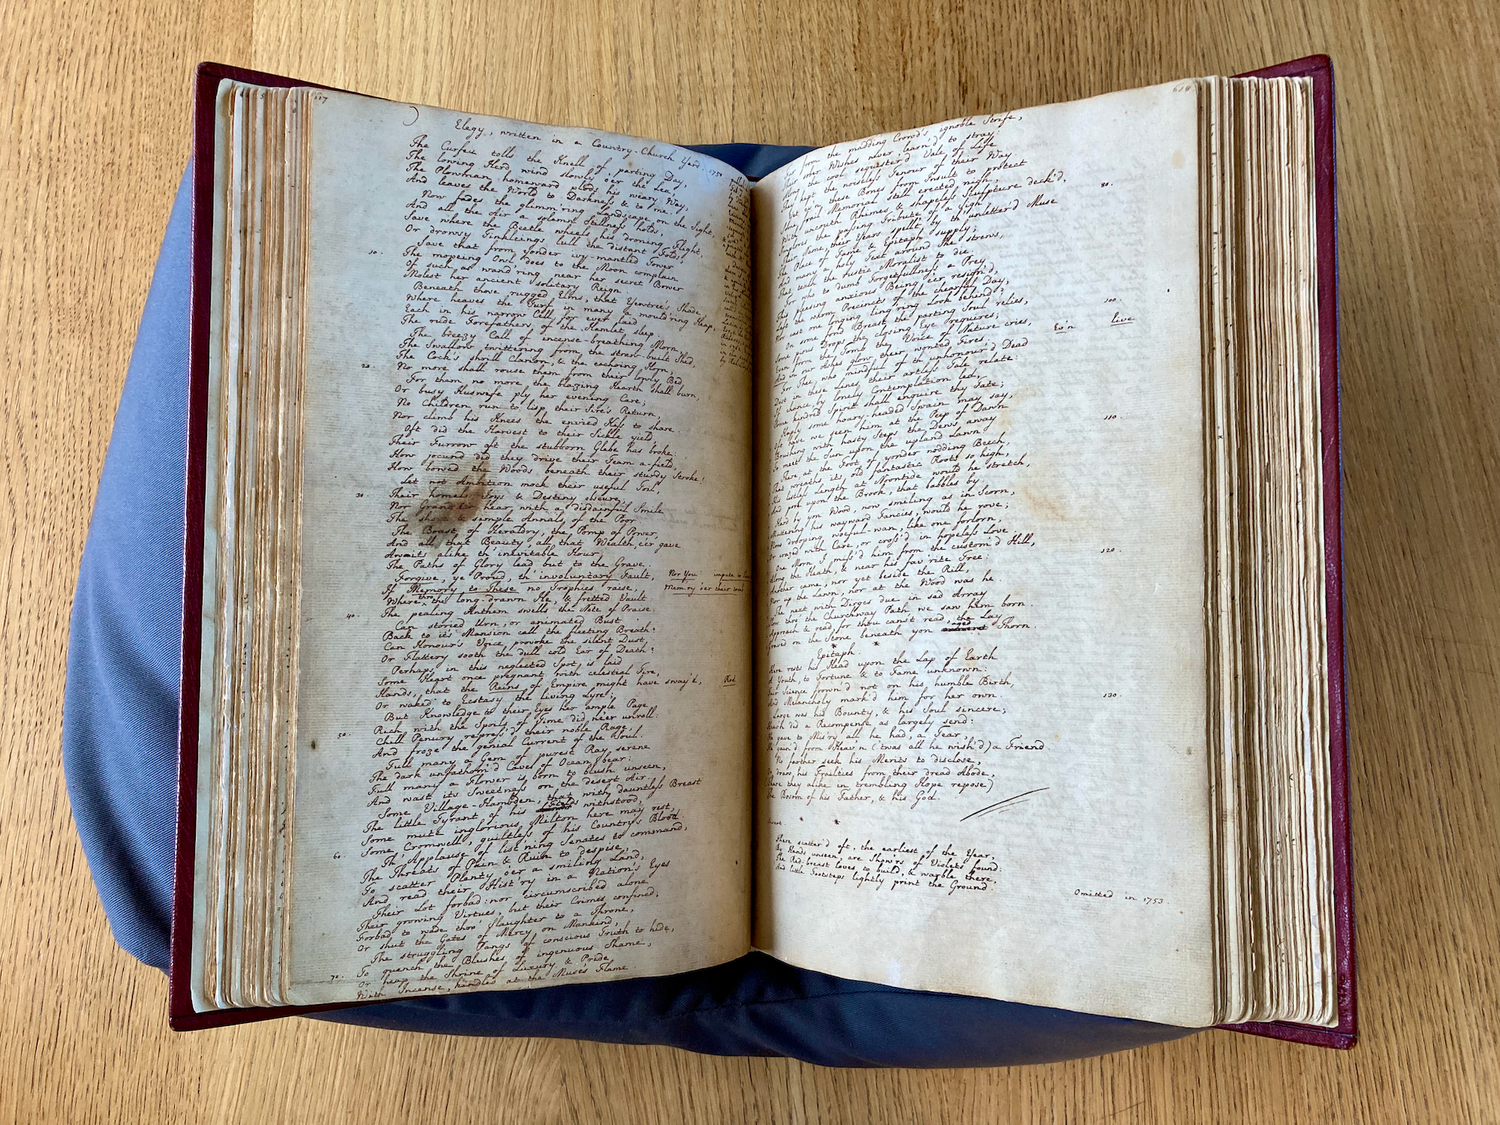 617
Elegy, written in a Country-Church Yard. 1750
The Curfeu tolls the Knell of parting Day,
The lowing Herd wind slowly o'er the Lea,
The Plowman homeward plods his weary Way,
And leaves the World to Darkness & to me.
Now fades the glimm'ring Landscape on the Sight,
And all the Air a solemn Stillness holds;
Save where the Beetle wheels his droning Flight,
Or drowsy Tinklings lull the distant Folds,
Save that from yonder ivy-mantled Tower
10. The mopeing Owl does to the Moon complain
Of such, as wand'ring near her secret Bower
Molest her ancient solitary Reign.
Beneath those rugged Elms, that Yewtree's Shade,
Where heaves the Turf in many a mould'ring Heap,
Each in his narrow Cell for ever laid,
The rude Forefathers of the Hamlet sleep.
The breezy Call of incense-breathing Morn,
The Swallow twittering from the straw-built Shed,
The Cock's shrill Clarion, & the ecchoing Horn,
20. No more shall rouse them from their lowly Bed.
For them no more the blazing Hearth shall burn,
Or busy Huswife ply her evening Care;
No Children run to lisp their Sire's Return
Nor climb his Knees the envied Kiss to share
Oft did the Harvest to their Sickle yield
Their Furrow oft the stubborn Glebe has broke;
How jocund did they drive their Team a-field
How bow'd the Woods beneath their sturdy Stroke!
Let not Ambition mock their useful Toil,
30. Their homely Joys & Destiny obscure;
Nor Grandeur hear with a disdainful Smile
The short & simple Annals of the Poor
The Boast of Heraldry, the Pomp of Power,
And all that Beauty, all that Wealth, e'er gave
Awaits alike th' inevitable Hour,
The Paths of Glory lead but to the Grave.
Forgive, ye Proud, th' involuntary Fault, Nor You impute to
If Memory to These no Trophies raise, Mem'ry o'er their
Where thro' the long-drawn Ile, & fretted Vault
40. The pealing Anthem swells the Note of Praise.
Can storied Urn, or animated Bust
Back to it's Mansion call the fleeting Breath?
Can Honour's Voice provoke the silent Dust,
Or Flattery sooth the dull cold Ear of Death?
Perhaps in this neglected Spot is laid
Some Heart once pregnant with celestial Fire,
Hands, that the Reins of Empire might have sway'd, Rod
Or waked to Ecstasy the living Lyre;
But Knowledge to their Eyes her ample Page
50. Rich with the Spoils of Time did ne'er unroll:
Chill Penury repress'd their noble Rage
And froze the genial Current of the Soul.
Full many a Gem of purest Ray serene
The dark unfathom'd Caves of Ocean bear:
Full many a Flower is born to blush unseen,
And wast its Sweetness on the desert Air.
Some Village-Hambden, that with dauntless Breast
The little Tyrant of his Fields withstood;
Some mute inglorious Milton here may rest,
60. Some Cromwell, guiltless of his Country's Blood.
Th' Applause of list'ning Senates to command,
The Threats of Pain & Ruin to despise,
To scatter Plenty o'er a smiling Land,
And read their Hist'ry in a Nation's Eyes
Their Lot forbad: nor circumscribed alone
Their growing Virtues, but their Crimes confined;
Forbad to wade thro' Slaughter to a Throne,
Or shut the Gates of Mercy on Mankind,
The struggling Pangs of conscious Truth to hide,
70. To quench the Blushes of ingenuous Shame,
Or heap the Shrine of Luxury & Pride
With Incense, kindled at the Muse's Flame.
from the madding Crowd's ignoble Strife,
Wishes never learn'd to stray:
the cool sequester'd Vale of Life
kept the noiseless Tenour of their Way
these Bones from Insult to protect
frail Memorial still erected nigh,
80.
With uncouth Rhimes & shapeless Sculpture deck'd,
the passing Tribute of a Sigh.
Name, their Years, spelt by th' unletter'd Muse
Place of Fame & Epitaph supply;
many a holy Text around she strews,
teach the rustic Moralist to die.
who to dumb Forgetfulness a Prey
pleasing anxious Being e'er resign'd,
the warm Precincts of the chearful Day,
cast one longing ling'ring Look behind?
On some fond Breast the parting Soul relies,
pious Drops the closing Eye requires;
100.
from the Tomb the Voice of Nature cries,
in our Ashes glow their wonted Fires. Ev'n live
For Thee, who mindful of th' unhonour'd Dead
Dost in these Lines their artless Tale relate
If chance by lonely Contemplation led,
kindred Spirit shall enquire thy Fate;
Haply some hoary-headed Swain may say,
have we seen him at the Peep of Dawn
110.
Brushing with hasty Steps the Dews away
To meet the Sun upon the upland Lawn
There at the Foot of yonder nodding Beech,
That wreathes its old fantastic Roots so high,
His listless Length at Noontide would he stretch,
And pore upon the Brook, that babbles by
Hard by yon Wood, now smiling as in Scorn,
Mutt'ring his wayward Fancies, would he rove;
Now drooping, woeful wan, like one forlorn,
Or crazed with Care, or cross'd in hopeless Love
One Morn I miss'd him from the custom'd Hill,
120.
Along the Heath, & near his fav'rite Tree
Another came, nor yet beside the Rill,
Nor up the Lawn, nor at the Wood was he.
The next with Dirges due in sad Array
Slow thro' the Churchway Path we saw him born
Approach & read, for thou canst read, the Lay
Graved on the Stone beneath yon aged Thorn
Epitaph.
Here rests his Head upon the Lap of Earth
A Youth, to Fortune & to Fame unknown:
Fair Science frown'd not on his humble Birth,
And Melancholy mark'd him for her own 130.
Large was his Bounty, & his Soul sincere;
Heav'n did a Recompence as largely send:
He gave to Mis'ry all he had, a Tear
He gain'd from Heav'n ('twas all he wish'd) a Friend
No farther seek his Merits to disclose,
Or draw his Frailties from their dread Abode,
(There they alike in trembling Hope repose)
The Bosom of his Father, & his God.
There scatter'd oft, the earliest of the Year,
By Hands unseen, are Show'rs of Violets found:
The Red-breast loves to build, & warble there,
And little Footsteps lightly print the Ground.
Omitted in 1753.